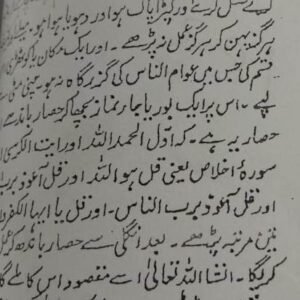 کرنے غسل کرلے اور کپڑا پاک ہو اور دھویا ہوا ہو۔
ہرگز پہن کر ہرگز عمل نہ پڑھے۔ اور ایک مکان یا کوٹھری
قسم کی جس میں عوام الناس کی گزرگاہ نہ ہو
لیے۔ اس پر ایک بوریا جاء نماز بچھا کر حصار باندھے
حصار یہ ہے۔ کہ اول الحمد اللہ اور ایت الکرسی
سورۂ اخلاص یعنی قل ہو اللہ اور قل آعوذ برب
اور قل آعوذ برب الناس۔ اور قل یا ایہا الکفرو
تین مرتبہ پڑھے۔ بعد انگلی سے حصار باندھ کر عمل
کریگا۔ انشا اللہ تعالیٰ اسے مقصود اس کا ملے گا